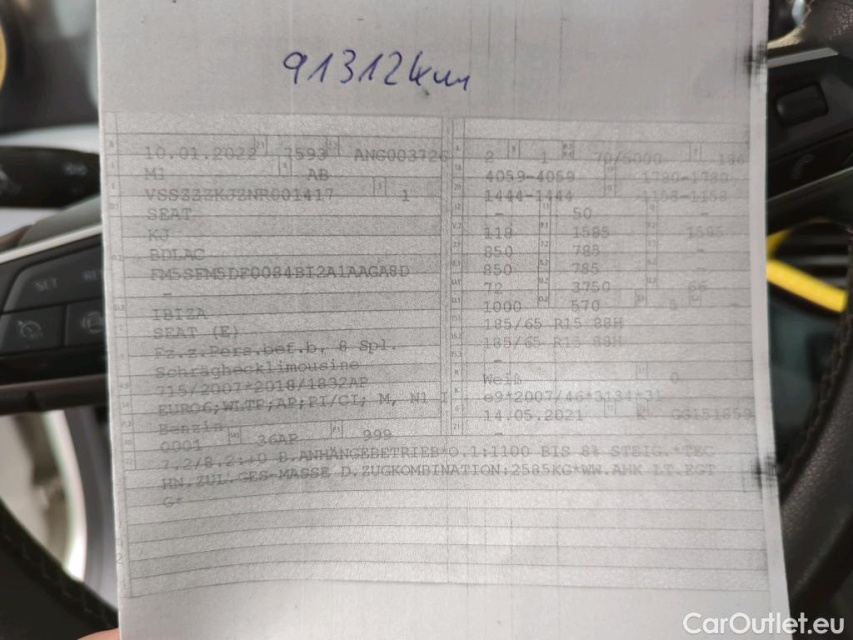 91312km
10.01.2022 7593 ANG003726 2 1 70/5000 186
M1 AB 4059-4059 1780-1780
VSSZZZKJZNR001417 1 1444-1444 1158-1158
SEAT - 50 -
KJ 118 1585 1585
BDLAC 850 785 -
FM5SFM5DF0084BI2A1AAGA8D 850 785 -
- 72 3750 66
IBIZA 1000 570 5
SEAT (E) 185/65 R15 88H
Fz.z.Pers.bef.b. 8 Spl. 185/65 R15 88H
Schräghecklimousine -
715/2007*2018/1832AP Weiß 0
EURO6;WLTP;AP;PI/CI; M, N1 I e9*2007/46*3134*31
Benzin 14.05.2021 K GG151859
0001 36AP 999 -
7.2/8.2:+0 B.ANHÄNGEBETRIEB*O.1:1100 BIS 8% STEIG.*TEC
HN.ZUL.GES-MASSE D.ZUGKOMBINATION:2585KG*WW.AHK LT.EGT
G*
SET
CarOutlet.eu